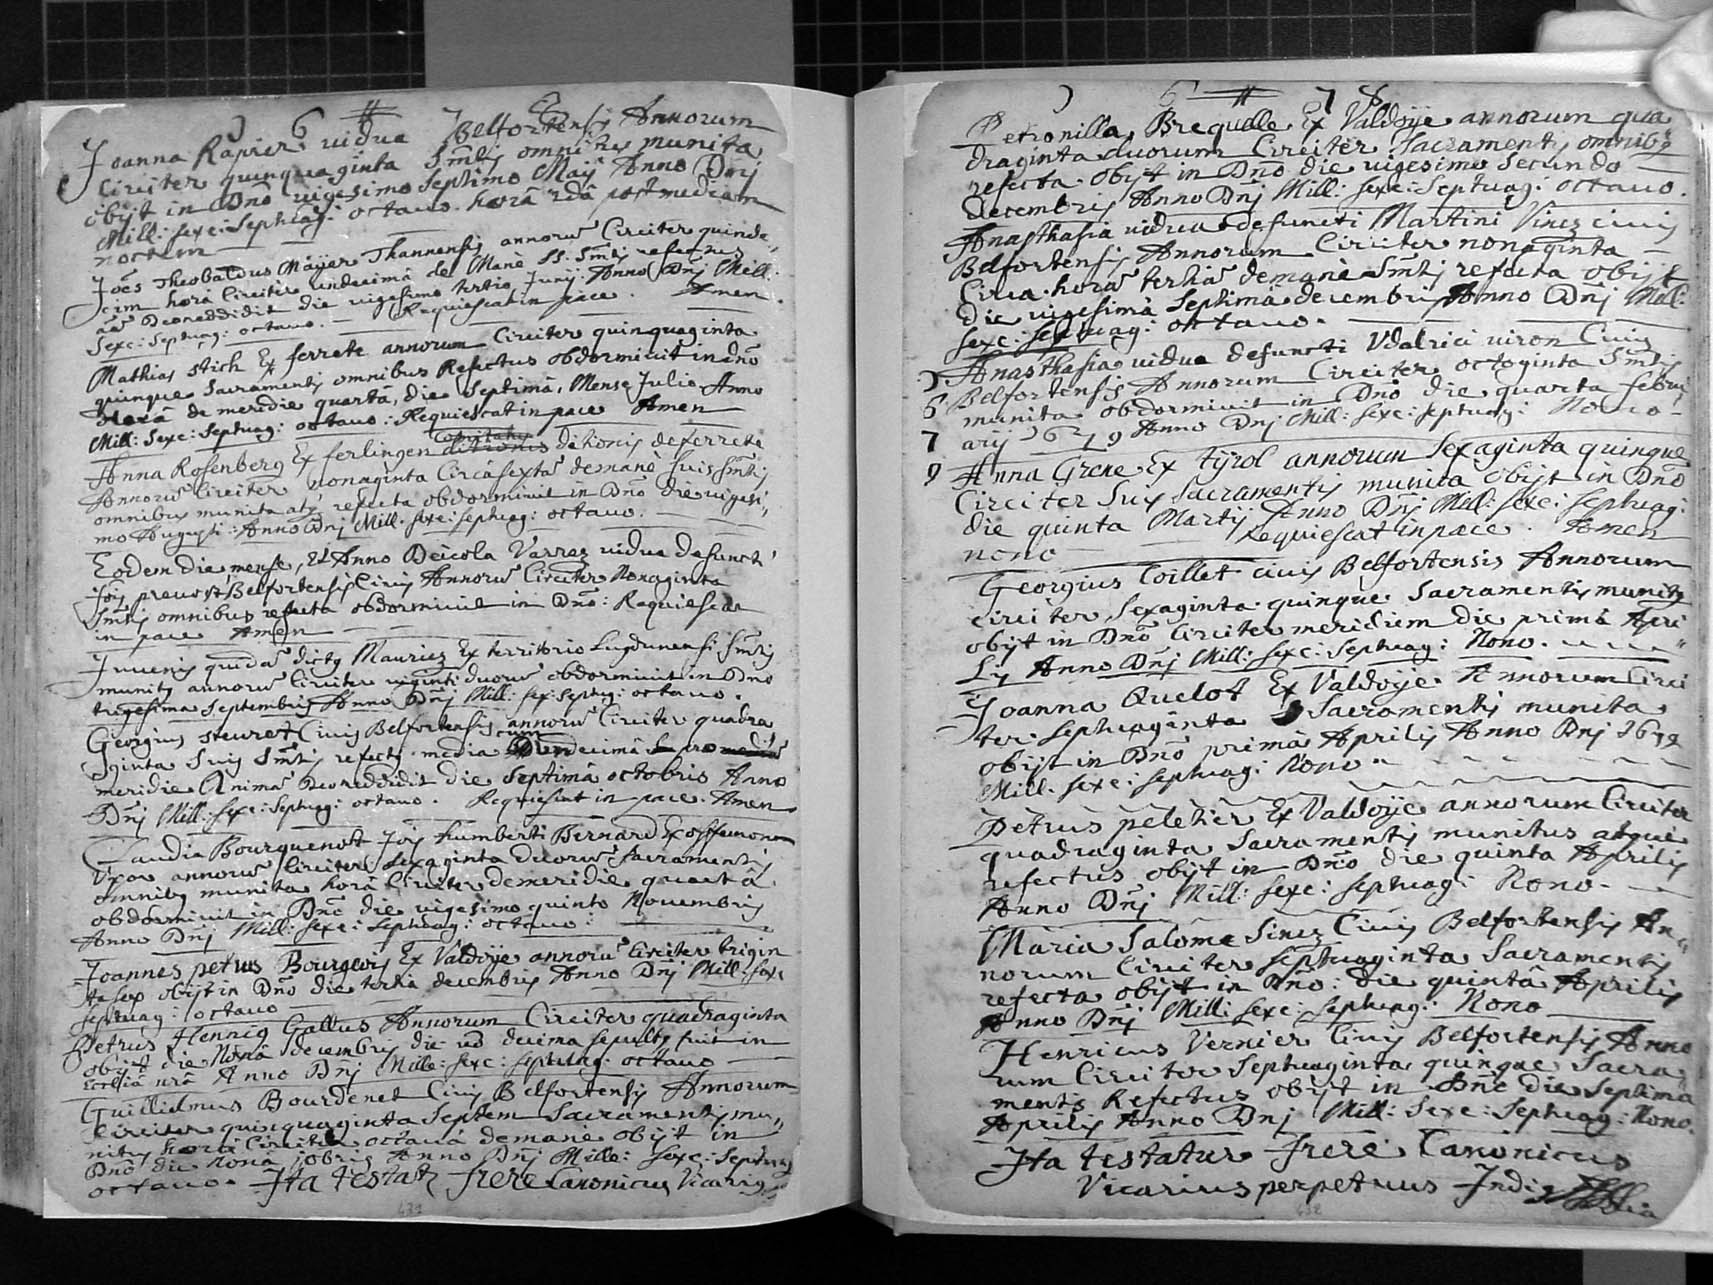 J 6 # 7 8
Joanna Rapier vidua Belfortensis Annorum
Circiter quinquaginta Smtis omnibus munita
obijt in Dno vigesimo septimo Maij Anno Dnj
Mill: sexc: septuag: octavo. horâ 2dâ post mediam
noctem
Joes Theobaldus Maijer Thannensis annorũ Circiter quinde,,
cim horâ Circiter undecimâ de Manè SS. Smtis refectus
aãm Deo reddidit die vigesimo tertio Junij. Anno Dnj Mill:
Sexc: septuag: octavo. Requiescat in pace. Amen.
Mathias Stich Ex ferrete annorum Circiter quinquaginta
quinque Sacramentis omnibus Refectus obdormivit in dño
Horâ de meridie quartâ, die septimâ, Mense Julio Anno
Mill: Sexc: septuag: octavo: Requiescat in pace Amen
Anna Rosenberg Ex ferlingen ditionis de ferrete
Annorũ Circiter nonaginta Circà sextã demanè suis smtis
omnibus munita atq refecta obdormivit in Dño die vigesi,,
mo Augusti: Anno Dnj Mill. sexc: septuag: octavo.
Eodem die, mense, Et Anno Deicola Varrez vidua defuncti
Jois prevost Belfortensis Civis Annorũ Circiter Nonaginta
Smtis omnibus refecta obdormivit in Dño: Requiescat
in pace Amen
Juvenis quidã dictq Mauriez Ex territorio Lugdunensi smtis
munitq annorũ Circiter viginti duorũ obdormivit in Dno
trigesima septembris Anno Dnj Mill: sex: septug: octavo.
Georgius steuret Civis Belfortensis annorũ Circiter quadra
ginta Suis Smtis refectq media cum undecimâ
meridie Animã Deo reddidit die septimâ octobris Anno
Dnj Mill: sexc: septuag: octavo. Requiescat in pace Amen
Claudia Bourquenost Jois humberti Bernard Ex offemone
Uxor annorũ Circiter sexaginta duorũ sacramentis
omnibq munita horâ Circiter demeridie quartâ
obdormivit in Dnõ die vigesimo quinto Novembris
Anno Dnj Mill: sexc: septuag: octavo:
Joannes petrus Bourgeois Ex Valdoije annorũ Circiter trigin
ta sex obijt in Dno die tertia decembris Anno Dnj Mill: sexc
septuag: octavo
Petrus Henricq Gallus Annorum Circiter quadraginta
obijt die Nonâ decembris die vo decima sepultq fuit in
Ecclesiâ nrâ Anno Dnj Mille: sexc: septuag: octavo
Guillielmus Bourdenet Civis Belfortensis Annorum
Circiter quinquaginta septem Sacramentis mu,,
nitus horâ Circiter octavâ demanè obijt in
Dnõ die Nonâ jobris Anno Dnj Mille: sexc: septuag
octavo. Ita testatq frere Canonicus Vicariq
431
J 6 # 7 8
Petronilla Brequelle Ex Valdoije annorum qua
draginta duorum Circiter Sacramentis omnibq
refecta obijt in Dno die vigesimo secundo
decembris Anno Dnj Mill: sexc: septuag: octavo.
Anasthasia vidua defuncti Martini Viney civis
Belfortensis Annorum Circiter nonaginta
Circa horã tertiã demanè Smtis refecta obijt
die vigesimâ septimâ decembris Anno Dnj Mill:
sexc: septuag: octavo.
J Anasthasia vidua defuncti Udalrici viron Civis
6 Belfortensis Annorum Circiter octoginta Smtis
munita obdormivit in Dño die quarta febru
7 arij 1679 Anno Dnj Mill: sexc: septuag: Nono
9 Anna Grene Ex tijrol annorum sexaginta quinque
Circiter Suis Sacramentis munita obijt in Dno
die quinta Martij Anno Dnj Mill: sexc: septuag:
nono Requiescat in pace. Amen
Georgius Coillet civis Belfortensis Annorum
circiter sexaginta quinque Sacramentis munitq
obijt in Dno Circiter meridiem die primâ Apri
lis Anno Dnj Mill: sexc: septuag: Nono.
Joanna Quelot Ex Valdoije Annorum Circi
ter septuaginta Sacramentis munita
obijt in Dnõ primâ Aprilis Anno Dnj 1679
Mill: sexc: septuag: Nono.
Petrus peletier Ex Valdoije annorum Circiter
quadraginta Sacramentis munitus atque
refectus obijt in Dnõ die quinta Aprilis
Anno Dnj Mill: sexc: septuag: Nono.
Maria Salome Sinez Civis Belfortensis An,,
norum Circiter septuaginta Sacramentis
refecta obijt in Dño: die quintâ Aprilis
Anno Dnj Mill: sexc: septuag: Nono
Henricus Vernier Civis Belfortensis Anno
rum Circiter septuaginta quinque Sacra
mentis Refectus obijt in Dno die septima
Aprilis Anno Dnj Mill: sexc: septuag: Nono.
Ita testatur frere Canonicus
Vicarius perpetuus
432